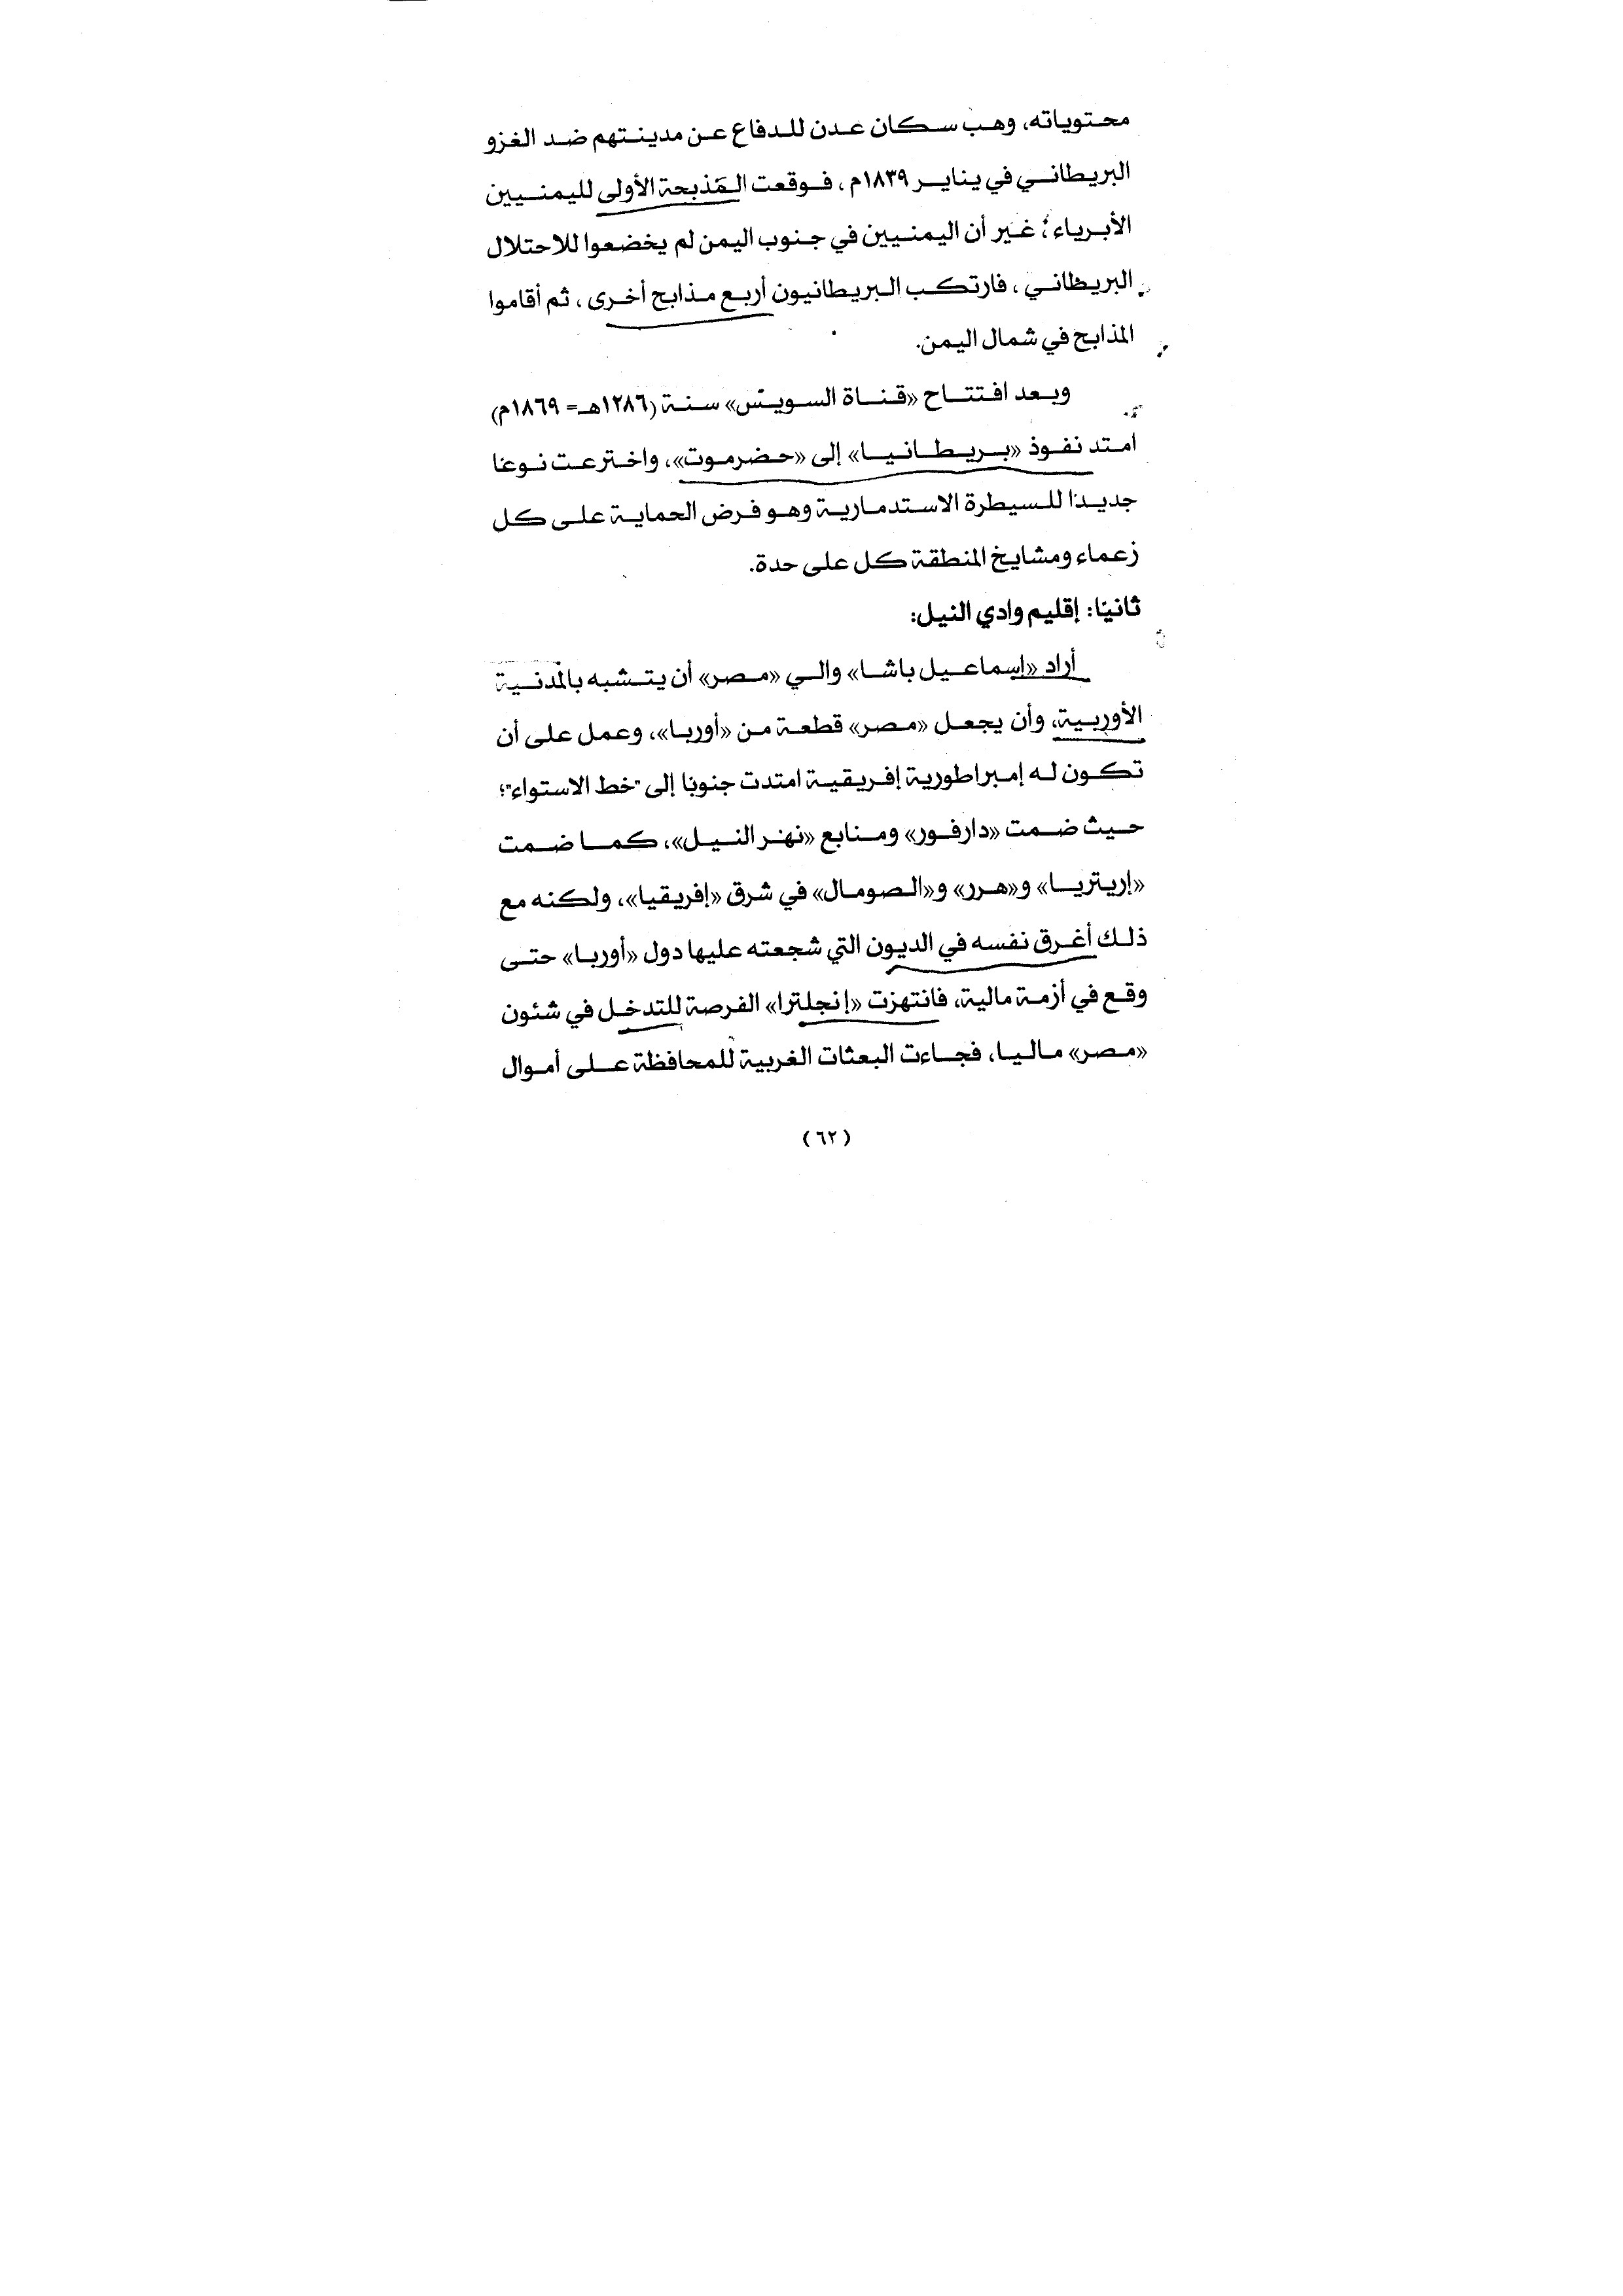 محتوياته، وهب سكان عدن للدفاع عن مدينتهم ضد الغزو
البريطاني في يناير ١٨٣٩م، فوقعت المذبحة الأولى لليمنيين
الأبرياء؛ غير أن اليمنيين في جنوب اليمن لم يخضعوا للاحتلال
البريطاني، فارتكب البريطانيون أربع مذابح أخرى، ثم أقاموا
المذابح في شمال اليمن.
وبعد افتتاح «قناة السويس» سنة (١٢٨٦هـ= ١٨٦٩م)
امتد نفوذ «بريطانيا» إلى «حضرموت»، واخترعت نوعًا
جديدًا للسيطرة الاستدمارية وهو فرض الحماية على كل
زعماء ومشايخ المنطقة كل على حدة.
ثانيًا: إقليم وادي النيل:
أراد «إسماعيل باشا» والي «مصر» أن يتشبه بالمدنية
الأوربية، وأن يجعل «مصر» قطعة من «أوربا»، وعمل على أن
تكون له إمبراطورية إفريقية امتدت جنوبًا إلى "خط الاستواء"؛
حيث ضمت «دارفور» ومنابع «نهر النيل»، كما ضمت
«إريتريا» و«هرر» و«الصومال» في شرق «إفريقيا»، ولكنه مع
ذلك أغرق نفسه في الديون التي شجعته عليها دول «أوربا» حتى
وقع في أزمة مالية، فانتهزت «إنجلترا» الفرصة للتدخل في شئون
«مصر» ماليا، فجاءت البعثات الغربية للمحافظة على أموال
(٦٢)